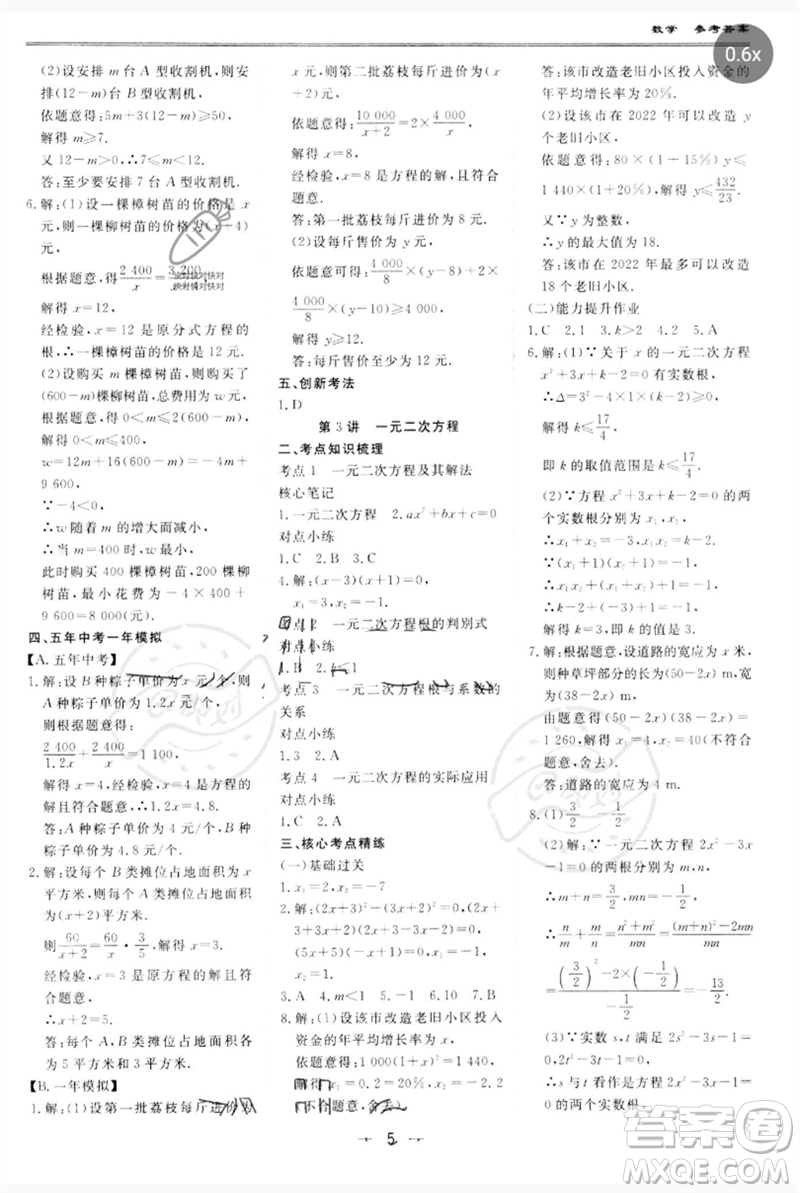 数学 参考答案
0.6x
(2)设安排 m 台 A 型收割机,则安
排(12-m)台 B 型收割机.
依题意得:5m+3(12-m)≥50,
解得 m≥7.
又 12-m>0,∴7≤m<12.
答:至少要安排 7 台 A 型收割机.
6.解:(1)设一棵樟树苗的价格是 x
元,则一棵柳树苗的价格为(x+4)
元,
根据题意,得 2 400/x = 3 200/
快对快对快对
快对快对快对
解得 x=12,
经检验,x=12 是原分式方程的
根,∴一棵樟树苗的价格是 12 元.
(2)设购买 m 棵樟树苗,则购买了
(600-m)棵柳树苗,总费用为 w 元.
根据题意得 0<m≤2(600-m),
解得 0<m≤400,
w=12m+16(600-m)=-4m+
9 600,
∵-4<0,
∴w 随着 m 的增大而减小,
∴当 m=400 时,w 最小,
此时购买 400 棵樟树苗、200 棵柳
树苗,最小花费为-4×400+
9 600=8 000(元).
四、五年中考一年模拟
【A.五年中考】
1.解:设 B 种粽子单价为 x 元/个,则
A 种粽子单价为 1.2x 元/个,
则根据题意,得:
2 400/1.2x + 2 400/x = 1 100,
解得 x=4,经检验,x=4 是方程的
解且符合题意,∴1.2x=4.8.
答:A 种粽子单价为 4.8 元/个,B
种粽子单价为 4 元/个.
2.解:设每个 B 类摊位占地面积为 x
平方米,则每个 A 类摊位占地面积
为(x+2)平方米.
则 60/(x+2) = 60/x · 3/5,解得 x=3,
经检验,x=3 是原方程的解且符
合题意,
∴x+2=5.
答:每个 A,B 类摊位占地面积各
为 5 平方米和 3 平方米.
【B.一年模拟】
1.解:(1)设第一批荔枝每斤进价为
x 元,则第二批荔枝每斤进价为
(x+2)元.
依题意得:10 000/(x+2) = 2×4 000/x,
解得 x=8,
经检验,x=8 是方程的解,且符合
题意.
答:第一批荔枝每斤进价为 8 元.
(2)设每斤售价为 y 元,
依题意可得:4 000/8 ×(y-8)+2×
4 000/8 ×(y-8-2)≥4 000,
解得 y≥12.
答:每斤售价至少为 12 元.
五、创新考法
1.D
第 3 讲 一元二次方程
二、考点知识梳理
考点 1 一元二次方程及其解法
核心笔记
1.一元二次方程 2.ax²+bx+c=0
对点小练
1.C 2.B 3.C
4.解:(x-3)(x+1)=0,
x₁=3,x₂=-1.
考点 2 一元二次方程根的判别式
对点小练
1.B 2.k≤1
考点 3 一元二次方程根与系数的
关系
对点小练
1.3 2.A
考点 4 一元二次方程的实际应用
对点小练
1.C 2.A
三、核心考点精练
(一)基础过关
1.x₁=3,x₂=-7
2.解:(2x+3)²-(3x+2)²=0,(2x+
3+3x+2)(2x+3-3x-2)=0,
(5x+5)(-x+1)=0,x₁=-1,
x₂=1.
3.A 4.m<1 5.-1 6.10 7.B
8.解:(1)设该市改造老旧小区投入
资金的年平均增长率为 x,
依题意得:1 000(1+x)²=1 440,
解得 x₁=0.2=20%,x₂=-2.2
(不合题意,舍去).
答:该市改造老旧小区投入资金的
年平均增长率为 20%.
(2)设该市在 2022 年可以改造 y
个老旧小区,
依题意得:80×(1+15%)y≤
1 440×(1+20%),解得 y≤432/23.
又∵y 为整数,
∴y 的最大值为 18.
答:该市在 2022 年最多可以改造
18 个老旧小区.
(二)能力提升作业
1.C 2.1 3.k>2 4.2 5.A
6.解:(1)∵关于 x 的一元二次方程
x²+3x+k-2=0 有实数根,
∴Δ=3²-4×1×(k-2)≥0,
解得 k≤17/4,
即 k 的取值范围是 k≤17/4.
(2)∵方程 x²+3x+k-2=0 的两
个实数根分别为 x₁,x₂,
∴x₁+x₂=-3,x₁x₂=k-2.
∵(x₁+1)(x₂+1)=-1,
∴x₁x₂+(x₁+x₂)+1=-1,
∴k-2-3+1=-1,
解得 k=3.
7.解:根据题意,设道路的宽应为 x 米,
则种草坪部分的长为(50-2x)米,
宽为(38-2x)米,
由题意得(50-2x)(38-2x)=
1 260,解得:x₁=4,x₂=40(不符合
题意,舍去).
答:道路的宽应为 4 m.
8.(1)3/2 -1/2
(2)解:∵一元二次方程 2x²-3x-
1=0 的两根分别为 m,n,
∴m+n=3/2,mn=-1/2,
∴n/m + m/n = (n²+m²)/mn = ((m+n)²-2mn)/mn
= ((3/2)²-2×(-1/2))/(-1/2) = -13/2.
(3)∵实数 s,t 满足 2s²-3s-1=
0,2t²-3t-1=0,且 s≠t,
∴s 与 t 看作是方程 2x²-3x-1=
0 的两个实数根,
5
答案圈
MXQE.COM